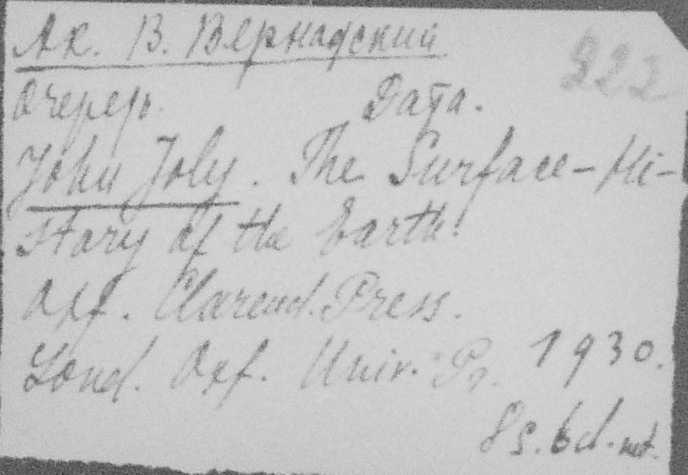 Ак. В. Вернадский
222
Очередь. Дата.
John Joly. The Surface-Hi-
story of the Earth.
Oxf. Clarend. Press.
Lond. Oxf. Univ. Pr. 1930.
8s. 6d. net.